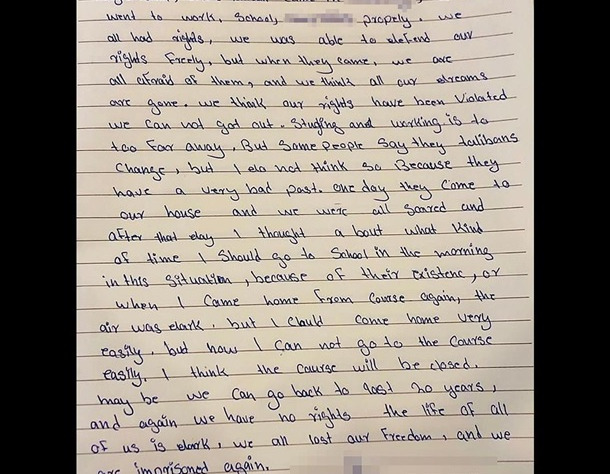 went to work, School, propely. we
all had rights, we was able to defend our
rights Freely, but when they came, we are
all afraid of them, and we think all our dreams
are gone. we think our rights have been Violated
we can not got out. Studing and working is to
too far away. But Some people Say they talibans
Change, but I do not think so Because they
have a very bad past. one day they come to
our house and we were all Scared and
after that day I thought a bout what kind
of time I Should go to School in the morning
in this Situation, because of their existenc, or
when I came home from course again, the
air was dark. but I Could come home very
easily. but now I can not go to the course
easily. I think the course will be closed.
may be we can go back to last 20 years,
and again we have no rights the life of all
of us is dark, we all lost our Freedom, and we
are imprisoned again.